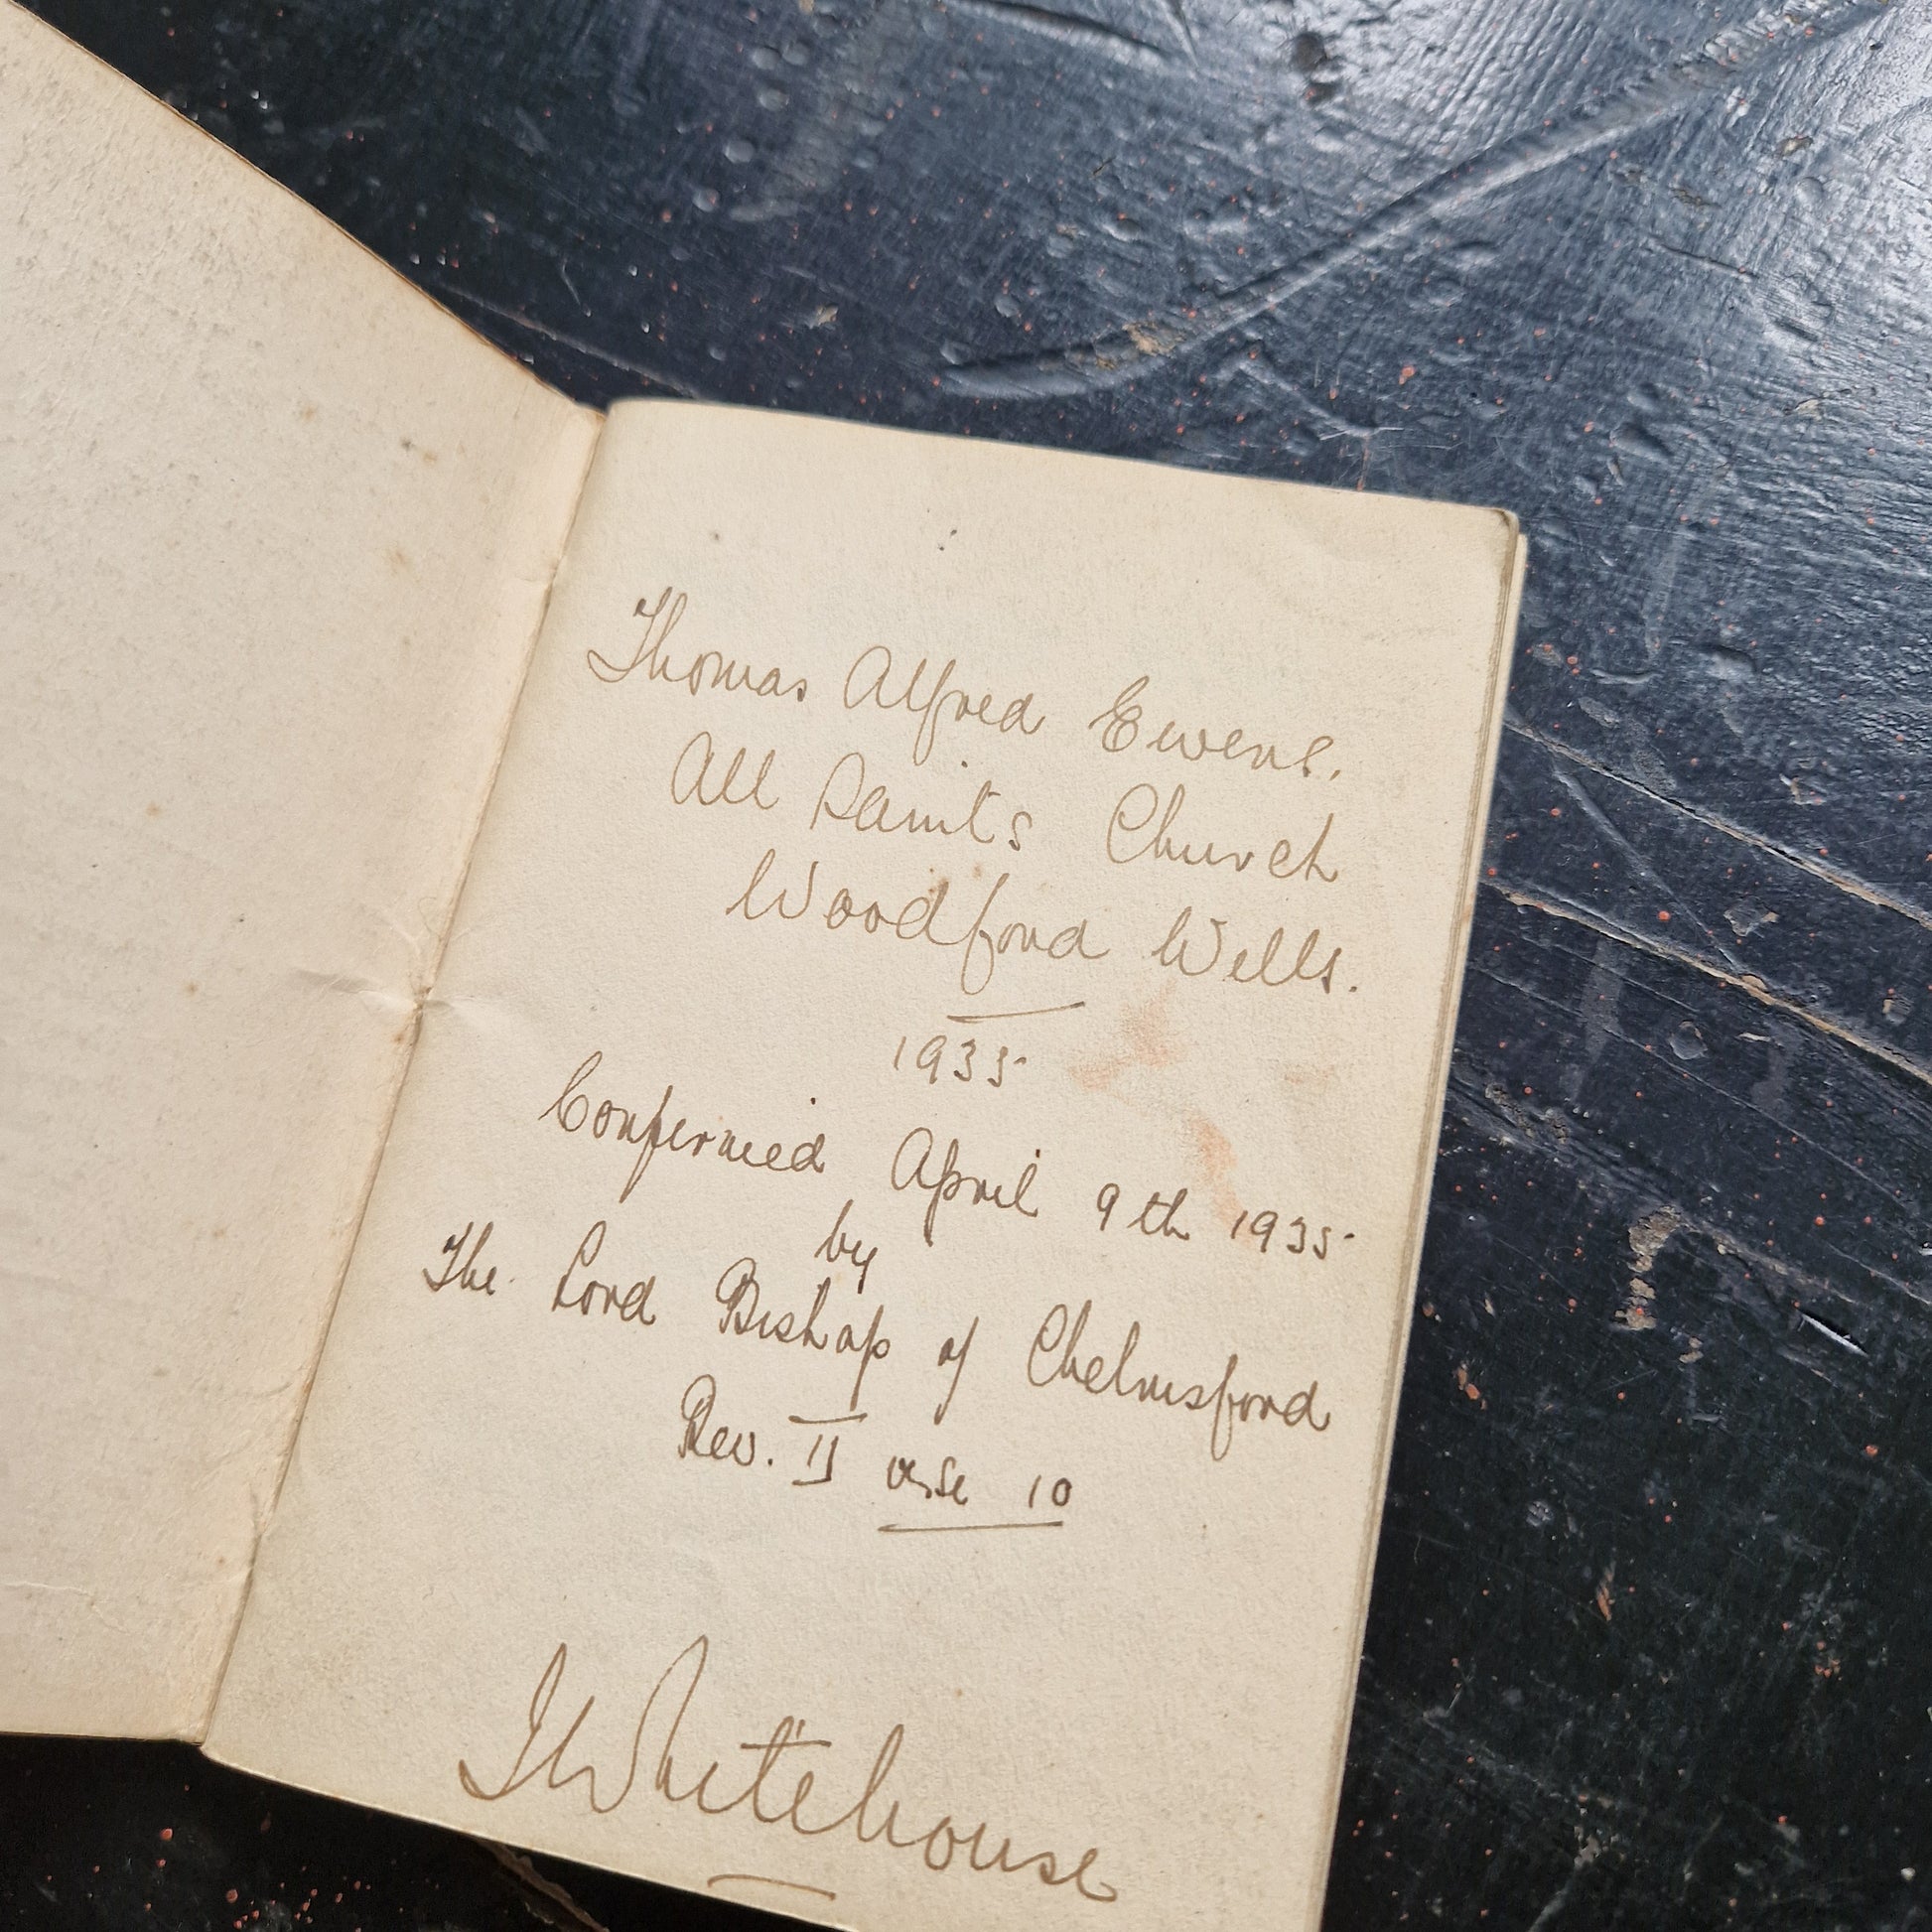 Thomas Alfred Ewens.
All Saints Church
Woodford Wells.
1935
Confirmed April 9th 1935
by
The Lord Bishop of Chelmsford
Rev. II verse 10
Whitehouse